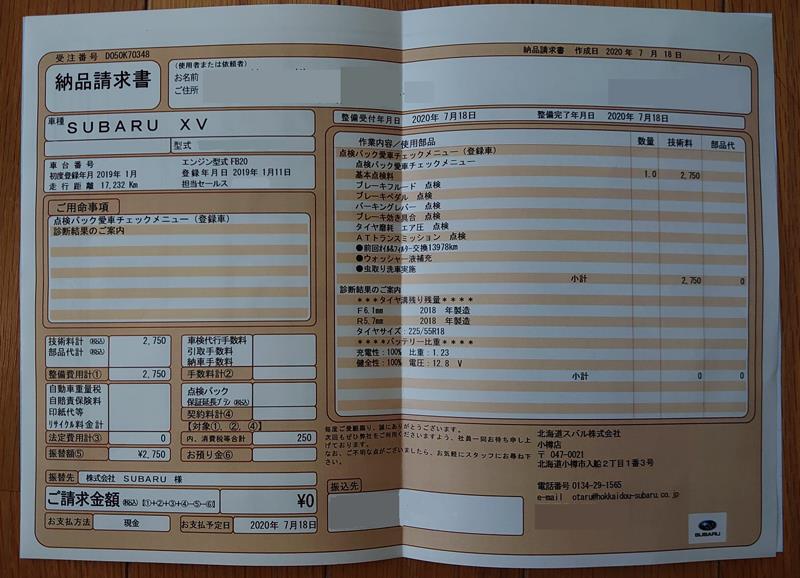 受注番号 D050K70348
納品請求書 作成日 2020年 7月 18日 1/ 1
納品請求書
(使用者または依頼者)
お名前
ご住所
車種 SUBARU XV
型式
整備受付年月日 2020年 7月18日 整備完了年月日 2020年 7月18日
車台番号 エンジン型式 FB20
初度登録年月 2019年 1月 登録年月日 2019年 1月11日
走行距離 17,232 Km 担当セールス
ご用命事項
点検パック愛車チェックメニュー（登録車）
診断結果のご案内
作業内容／使用部品 数量 技術料 部品代
点検パック愛車チェックメニュー（登録車）
点検パック愛車チェックメニュー
基本点検料 1.0 2,750
ブレーキフルード 点検
ブレーキペダル 点検
パーキングレバー 点検
ブレーキ効き具合 点検
タイヤ磨耗 エア圧 点検
ATトランスミッション 点検
●前回オイル&フィルター交換13978km
●ウォッシャー液補充
●虫取り洗車実施
小計 2,750 0
診断結果のご案内
＊＊＊タイヤ溝残り残量＊＊＊＊
F6.1mm 2018 年製造
R5.7mm 2018 年製造
タイヤサイズ:225/55R18
＊＊＊＊バッテリー比重＊＊＊＊
充電性:100% 比重:1.23
健全性:100% 電圧:12.8 V
小計 0 0
技術料計 (税込) 2,750
部品代計 (税込)
整備費用計① 2,750
自動車重量税
自賠責保険料
印紙代等
リサイクル料金計
法定費用計③ 0
振替額⑤ ¥2,750
車検代行手数料
引取手数料
納車手数料
手数料計②
点検パック
保証延長プラン (税込)
契約料計④
【対象①，②，④】
内、消費税等合計 250
お預り金⑥
振替先 株式会社 SUBARU 様
ご請求金額 (税込) [①+②+③+④-⑤-⑥] ¥0
お支払方法 現金 お支払予定日 2020年 7月18日
毎度ご愛顧賜り、誠にありがとうございます。
次回もぜひ弊社をご利用くださいますよう、社員一同お待ち申し上
げております。
なお、ご不明な点がございましたら、お気軽にスタッフにお尋ね下
さい。
振込先
北海道スバル株式会社
小樽店
〒 047-0021
北海道小樽市入船２丁目１番３号
電話番号 0134-29-1565
e-mail otaru@hokkaidou-subaru.co.jp
SUBARU